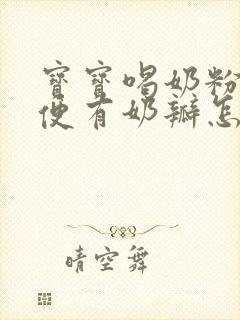 寶寶喝奶粉
便有奶瓣怎
晴空舞